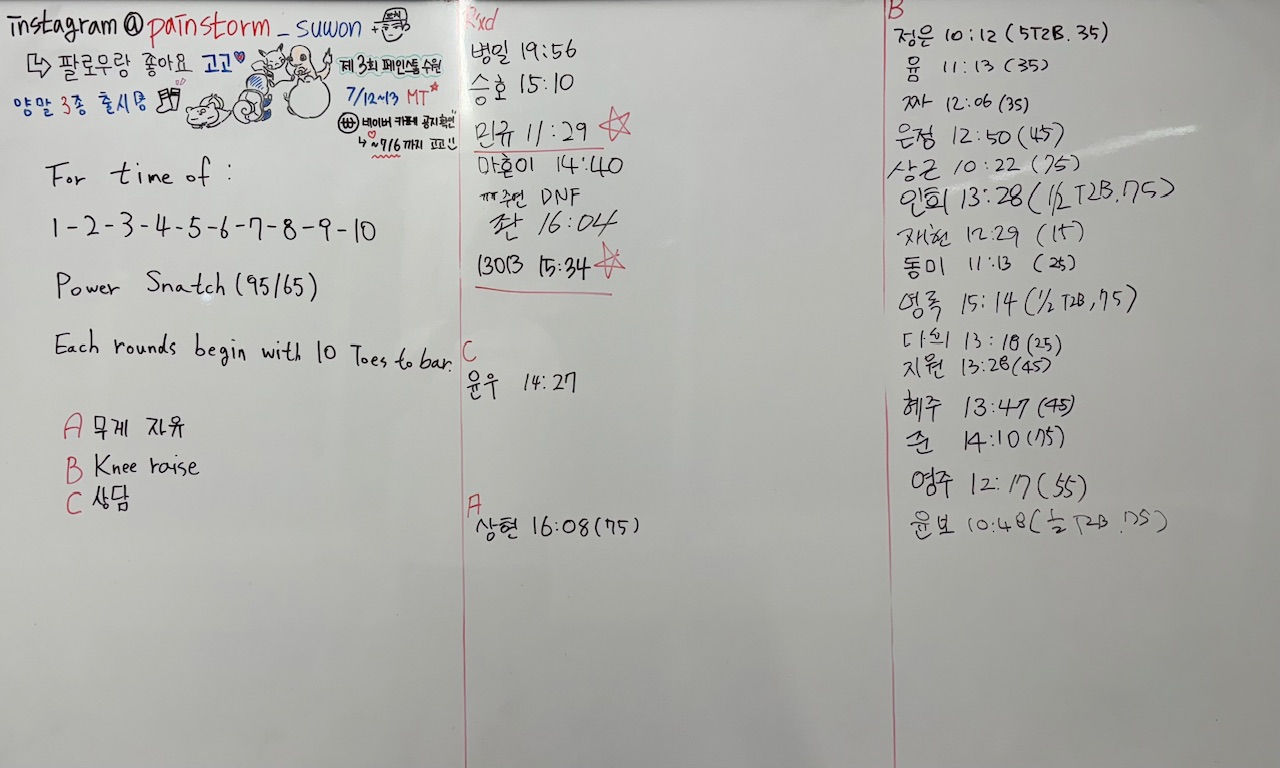 instagram@painstorm_suwon
↳ 팔로우랑 좋아요 고고♥
양말 3종 출시중
제3회 페인스톰수원
7/12~13 MT
네이버 카페 공지확인
~7/6까지 고고
For time of :
1-2-3-4-5-6-7-8-9-10
Power Snatch (95/65)
Each rounds begin with 10 Toes to bar.
A 무게 자유
B Knee raise
C 상담
R'xd
병일 19:56
승호 15:10
민규 11:29
마혼이 14:40
주연 DNF
좐 16:04
15:34
C
윤우 14:27
A
상현 16:08(75)
B
정은 10:12 (5T2B. 35)
윰 11:13 (35)
짜 12:06 (35)
은정 12:50 (45)
상근 10:22 (75)
인희 13:28 (1/2 T2B, 75)
재헌 12:29 (15)
동미 11:13 (25)
영록 15:14 (1/2 T2B, 75)
13:18 (25)
지원 13:28 (45)
혜주 13:47 (45)
준 14:10 (75)
영주 12:17 (55)
윤보 10:48 (1/2 T2B. 75)